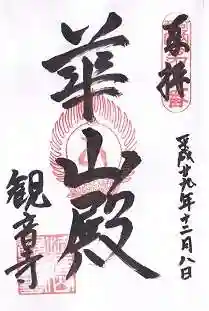 奉拝
平成廿九年十二月八日
華山殿
観音寺